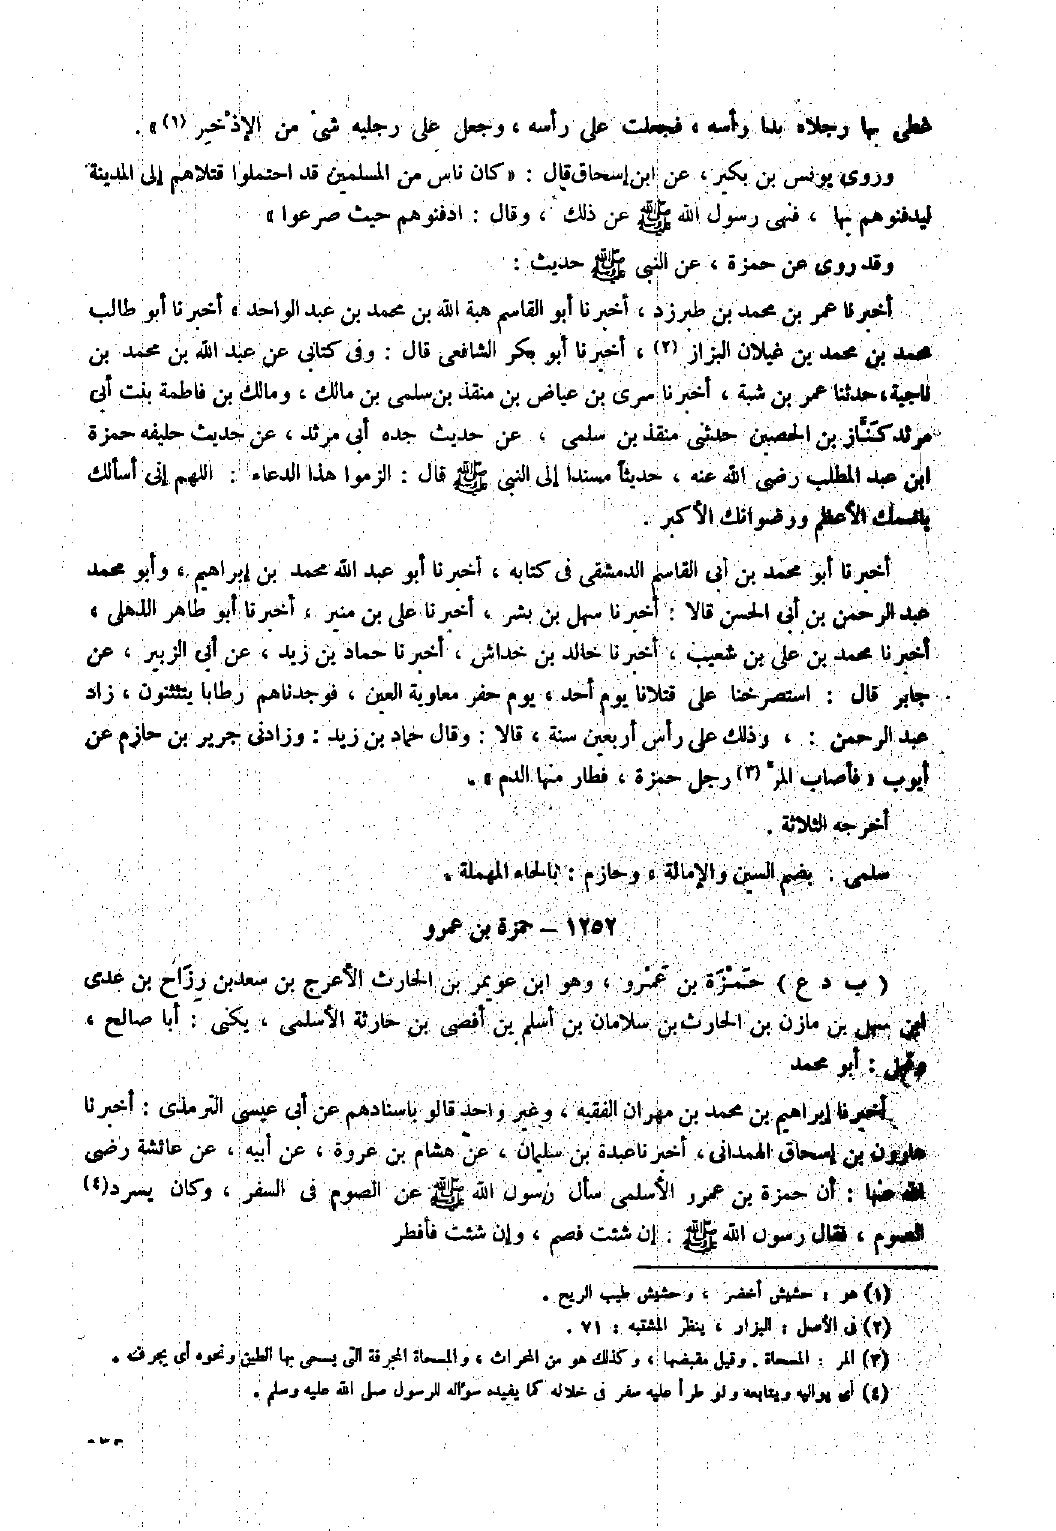 غطى بها رجلاه بدا رأسه ، فجعلت على رأسه ، وجعل على رجليه شىء من الإذخير (١) » .
وروى يونس بن بكير ، عن ابن إسحاق قال : « كان ناس من المسلمين قد احتملوا قتلاهم إلى المدينة
ليدفنوهم بها ، فنهى رسول الله ﷺ عن ذلك ، وقال : ادفنوهم حيث صرعوا »
وقد روى عن حمزة ، عن النبى ﷺ حديث :
أخبرنا عمر بن محمد بن طبرزد ، أخبرنا أبو القاسم هبة الله بن محمد بن عبد الواحد ، أخبرنا أبو طالب
محمد بن محمد بن غيلان البزاز (٢) ، أخبرنا أبو بكر الشافعى قال : وفى كتابى عن عبد الله بن محمد بن
ناجية ، حدثنا عمر بن شبة ، أخبرنا سرى بن عياض بن منقذ بن سلمى بن مالك ، ومالك بن فاطمة بنت أبى
مرثد كَنَّاز بن الحصين حدثنى منقذ بن سلمى ، عن حديث جده أبى مرثد ، عن حديث حليفه حمزة
ابن عبد المطلب رضى الله عنه ، حديثاً مسندا إلى النبى ﷺ قال : الزموا هذا الدعاء : اللهم إنى أسألك
باسمك الأعظم ورضوانك الأكبر .
أخبرنا أبو محمد بن أبى القاسم الدمشقى فى كتابه ، أخبرنا أبو عبد الله محمد بن إبراهيم ، وأبو محمد
عبد الرحمن بن أبى الحسن قالا : أخبرنا سهل بن بشر ، أخبرنا على بن منير ، أخبرنا أبو طاهر الذهلى ،
أخبرنا محمد بن على بن شعيب ، أخبرنا خالد بن خداش ، أخبرنا حماد بن زيد ، عن أبى الزبير ، عن
جابر قال : استصرخنا على قتلانا يوم أحد ، يوم حفر معاوية العين ، فوجدناهم رطابا يتثنون ، زاد
عبد الرحمن : ، وذلك على رأس أربعين سنة ، قالا : وقال حماد بن زيد : وزادنى جرير بن حازم عن
أيوب « فأصاب المرّ (٣) رجل حمزة ، فطار منها الدم » .
أخرجه الثلاثة .
سلمى . بضم السين والإمالة ، وحازم : بالحاء المهملة .
١٢٥٢ – حمزة بن عمرو
( ب د ع ) حَمْزَة بن عَمْرو ، وهو ابن عويمر بن الحارث الأعرج بن سعد بن رزَاح بن عدى
ابن سهل بن مازن بن الحارث بن سلامان بن أسلم بن أفصى بن حارثة الأسلمى ، يكنى : أبا صالح ،
وقيل : أبو محمد
أخبرنا إبراهيم بن محمد بن مهران الفقيه ، وغير واحد قالو بإسنادهم عن أبى عيسى الترمذى : أخبرنا
هارون بن إسحاق الهمدانى ، أخبرنا عبدة بن سليمان ، عن هشام بن عروة ، عن أبيه ، عن عائشة رضى
الله عنها : أن حمزة بن عمرو الأسلمى سأل رسول الله ﷺ عن الصوم فى السفر ، وكان يسرد (٤)
الصوم ، فقال رسول الله ﷺ : إن شئت فصم ، وإن شئت فأفطر
(١) هو : حشيش أخضر ، وحشيش طيب الريح .
(٢) فى الأصل : البزار ، ينظر المشتبه : ٧١ .
(٣) المر : المسحاة . وقيل مقبضها ، وكذلك هو من المحراث ، والمسحاة المجرفة التى يسحى بها الطين ونحوه أى يجرف .
(٤) أى يواليه ويتابعه ولو طرأ عليه سفر فى خلاله كما يفيده سؤاله للرسول صلى الله عليه وسلم .